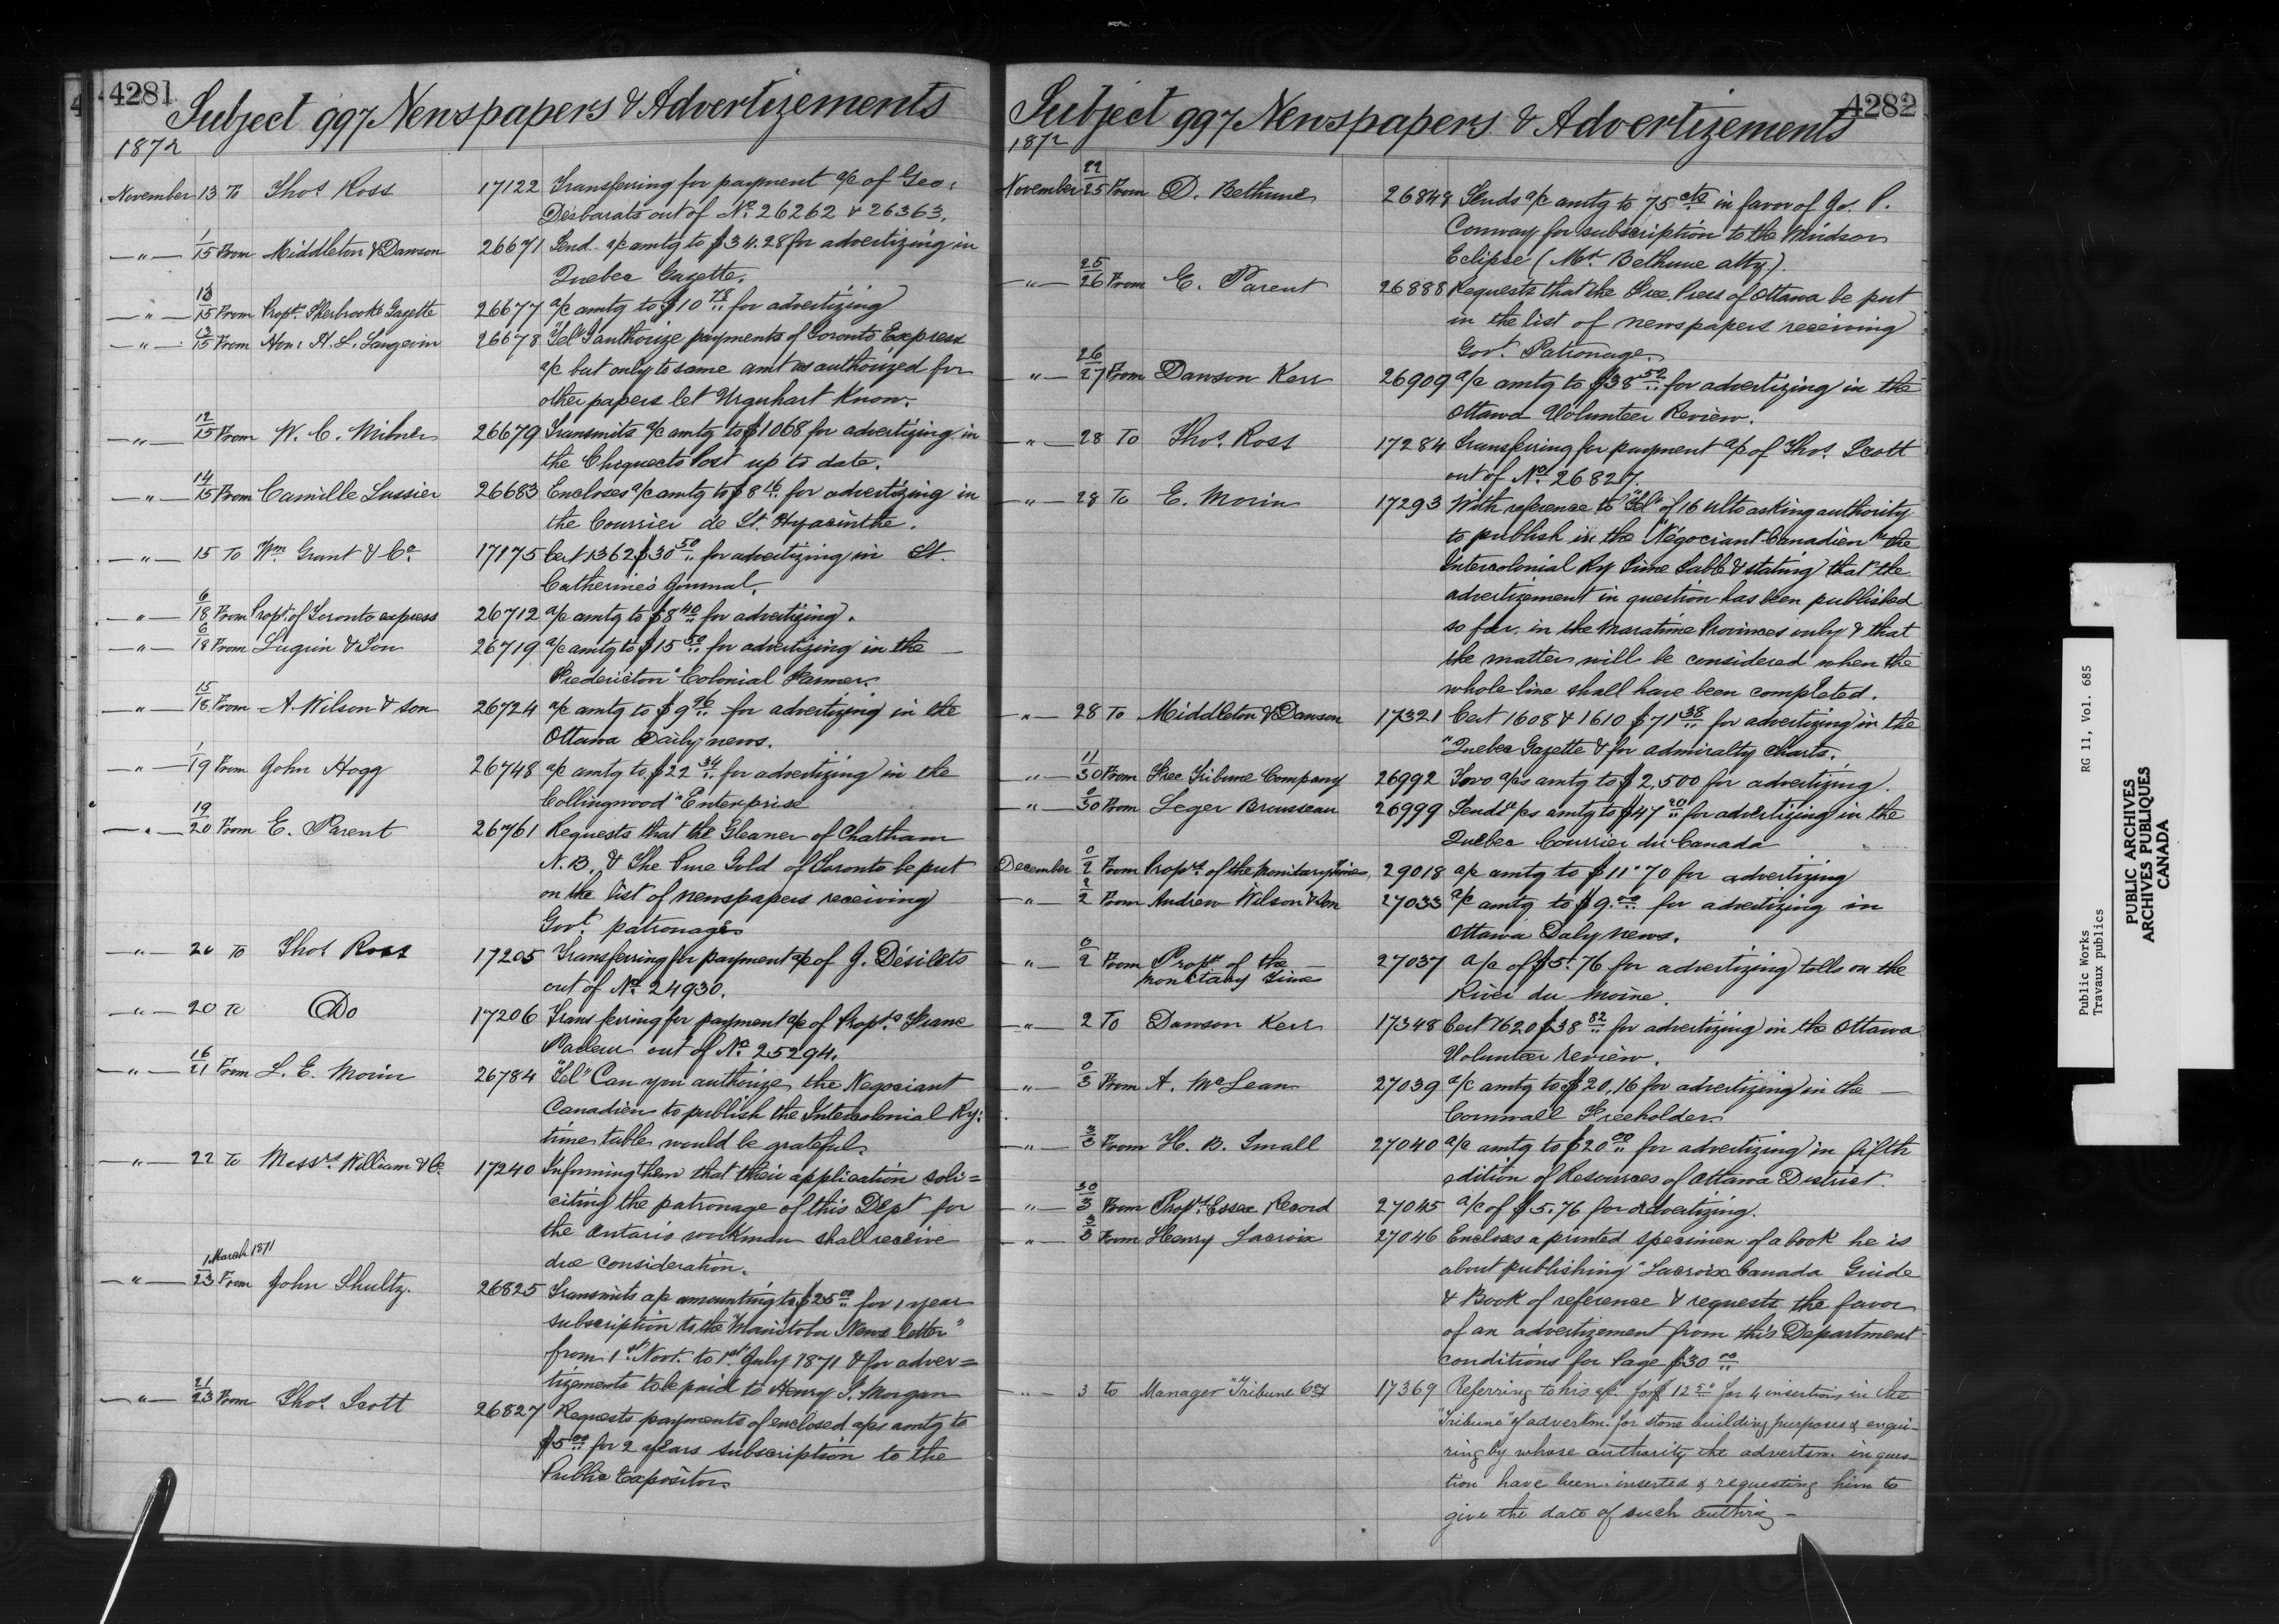 4281
Subject 997 Newspapers & Advertizements
1872
November 13 To Thos Ross 17122 Transferring for payment a/c of Geo:
Desbarats out of No. 26262 & 26363.
—"— 1/15 From Middleton & Dawson 26671 Send a/c amtg to $34.28 for advertizing in
Quebec Gazette.
—"— 13/15 From Propr. Sherbrooke Gazette 26677 a/c amtg to $10 78 for advertizing
—"— 13/15 From Hon: H. L. Langevin 26678 "Tel" I authorize payments of Toronto Express
a/c but only to same amt as authorized for
other papers let Urquhart know.
—"— 12/15 From W. C. Milner 26679 Transmits a/c amtg to $1068 for advertizing in
the Chignecto Post up to date.
—"— 14/15 From Camille Lussier 26683 Encloses a/c amtg to $8 16 for advertizing in
the Courrier de St. Hyacinthe.
—"— 15 To Wm Grant & Co. 17175 Cert 1362 $30 50 for advertizing in St.
Catherine's Journal.
—"— 6/18 From Propr. of Toronto express 26712 a/c amtg to $8 40 for advertizing.
—"— 6/18 From Lugrin & Son 26719 a/c amtg to $15 50 for advertizing in the
Fredericton "Colonial Farmer.
—"— 15/18 From A. Wilson & son 26724 a/c amtg to $9 96 for advertizing in the
Ottawa Daily news.
—"— 1/19 From John Hogg 26748 a/c amtg to $22 34 for advertizing in the
Collingwood "Enterprise
—"— 19/20 From E. Parent 26761 Requests that the Gleaner of Chatham
N.B. & The Pure Gold of Toronto be put
on the list of newspapers receiving
Govt. patronage
—"— 20 To Thos Ross 17205 Transferring for payment a/c of J. Désilets
out of No. 24930.
—"— 20 To Do 17206 Transferring for payment a/c of Proptrs Franc
Parleur out of No. 25294.
—"— 16/21 From L. E. Morin 26784 "Tel" Can you authorize the Negociant
Canadien to publish the Intercolonial Ry:
time table would be grateful.
—"— 22 To Messrs. William & Co. 17240 Informing them that their application soli=
citing the patronage of this Dept for
the Ontario workman shall receive
due consideration.
—"— 1 March 1871/23 From John Shultz. 26825 Transmits a/c amounting to $25 00 for 1 year
subscription to the "Manitoba News letter"
from 1st Novr. to 1st July 1871 & for adver=
tizements to be paid to Henry J. Morgan
—"— 21/23 From Thos Scott 26827 Requests payments of enclosed a/cs amtg to
$5 00 for 2 years subscription to the
Public Expositor
4282
Subject 997 Newspapers & Advertizements
1872
November 22/25 From D. Bethune 26848 Sends a/c amtg to 75 cts in favor of Jos. P.
Conway for subscription to the Windsor
Eclipse (Mr. Bethune atty).
—"— 25/26 From E. Parent 26888 Requests that the Free Press of Ottawa be put
in the list of newspapers receiving
Govt. Patronage.
—"— 26/27 From Dawson Kerr 26909 a/c amtg to $38 52 for advertizing in the
Ottawa Volunteer Review.
—"— 28 To Thos. Ross 17284 Transferring for payment a/c of Thos. Scott
out of No. 26827.
—"— 28 To E. Morin 17293 With reference to "Tel" of 16 ulto asking authority
to publish in the "Négociant Canadien" the
Intercolonial Ry Time Table & stating that the
advertizement in question has been published
so far in the Maratime Provinces only & that
the matter will be considered when the
whole line shall have been completed.
—"— 28 To Middleton & Dawson 17321 Cert 1608 & 1610 $71 38 for advertizing in the
"Quebec Gazette & for admiralty charts.
—"— 11/30 From Free Tribune Company 26992 Two a/cs amtg to $2,500 for advertizing.
—"— 0/30 From Leger Brousseau 26999 Sends a/cs amtg to $47 20 for advertizing in the
Quebec Courrier du Canada
December 0/2 From Proprs. of the Monitary Times 29018 a/c amtg to $11.70 for advertizing
—"— 2/2 From Andrew Wilson & Son 27033 a/c amtg to $9.00 for advertizing in
Ottawa Daly news.
—"— 0/2 From Proprs of the
Monetary Time 27037 a/c of $5.76 for advertizing tolls on the
River du Moine.
—"— 2 To Dawson Kerr 17348 Cert 1620 $38 82 for advertizing in the Ottawa
Volunteer review.
—"— 0/3 From A. McLean 27039 a/c amtg to $20,16 for advertizing in the
Cornwall Freeholder.
—"— 3/3 From H. B. Small 27040 a/c amtg to $20 00 for advertizing in fifth
edition of Resources of Ottawa District.
—"— 30/3 From Propr. Essex Record 27045 a/c of $5.76 for advertizing.
—"— 3/3 From Henry Lacroix 27046 Encloses a printed specimen of a book he is
about publishing "Lacroix Canada Guide
& Book of reference & requests the favor
of an advertizement from this Department
conditions for Page $30 00
—"— 3 to Manager "Tribune Coy 17369 Referring to his a/c for $ 12 50 for 4 insertions in the
"Tribune" of advertsm. for stone building purposes & enqui-
ring by whose authority the advertsm. in ques-
tion have been inserted & requesting him to
give the date of such
Public Works RG 11, Vol. 685
Travaux publics
PUBLIC ARCHIVES
ARCHIVES PUBLIQUES
CANADA